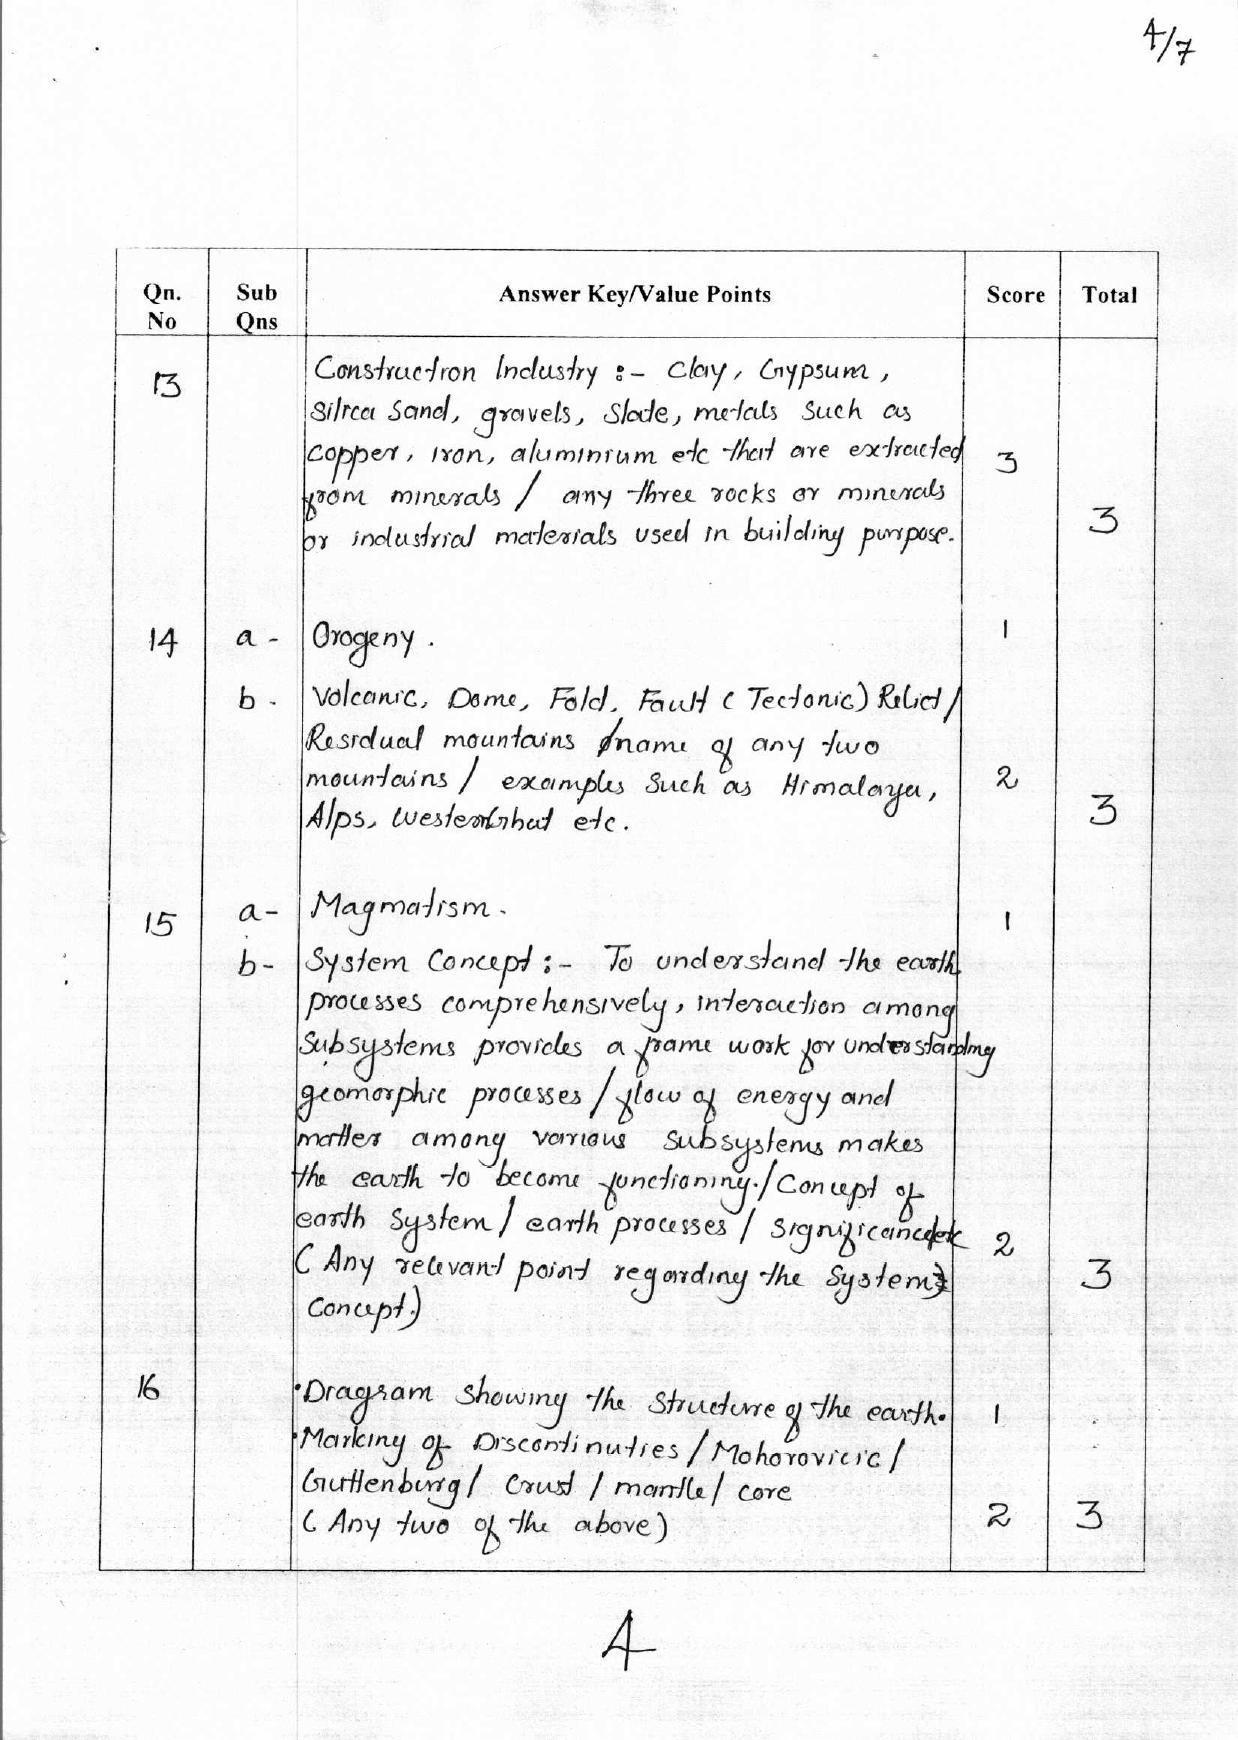 4/7
Qn. No Sub Qns Answer Key/Value Points Score Total
13 Construction Industry :- Clay, Gypsum,
Silica Sand, gravels, Slate, metals such as
copper, iron, aluminium etc that are extracted 3
from minerals / any three rocks or minerals
or industrial materials used in building purpose. 3
14 a - Orogeny. 1
b - Volcanic, Dome, Fold, Fault (Tectonic) Relict /
Residual mountains / name of any two
mountains / examples such as Himalaya, 2
Alps, Western Ghat etc. 3
15 a- Magmatism. 1
b- System Concept :- To understand the earth
processes comprehensively, interaction among
Subsystems provides a frame work for understanding
geomorphic processes / flow of energy and
matter among various subsystems makes
the earth to become functioning./ Concept of
earth system / earth processes / significance etc 2
( Any relevant point regarding the System 3
Concept.)
16 • Diagram showing the structure of the earth. 1
• Marking of Discontinuties / Mohorovicic /
Guttenburg / Crust / mantle / core
( Any two of the above) 2 3
4